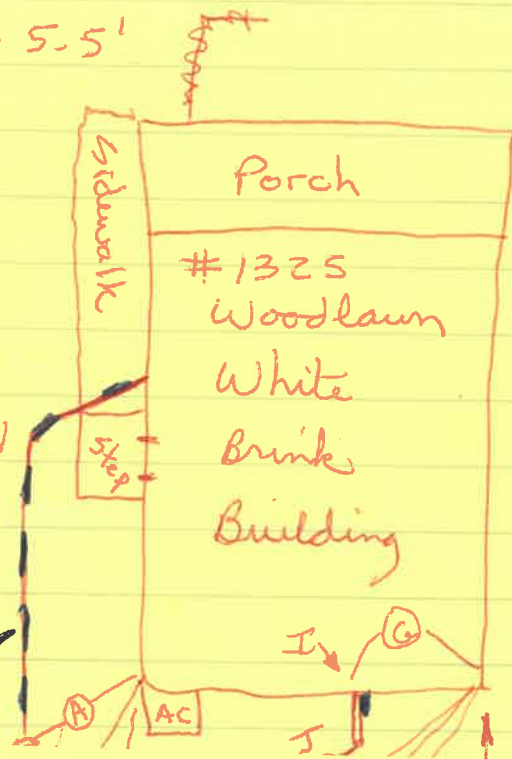 5-5'
Sidewalk
Porch
#1325
Woodlawn
White
Brink
Building
Step
I
G
A
AC
J